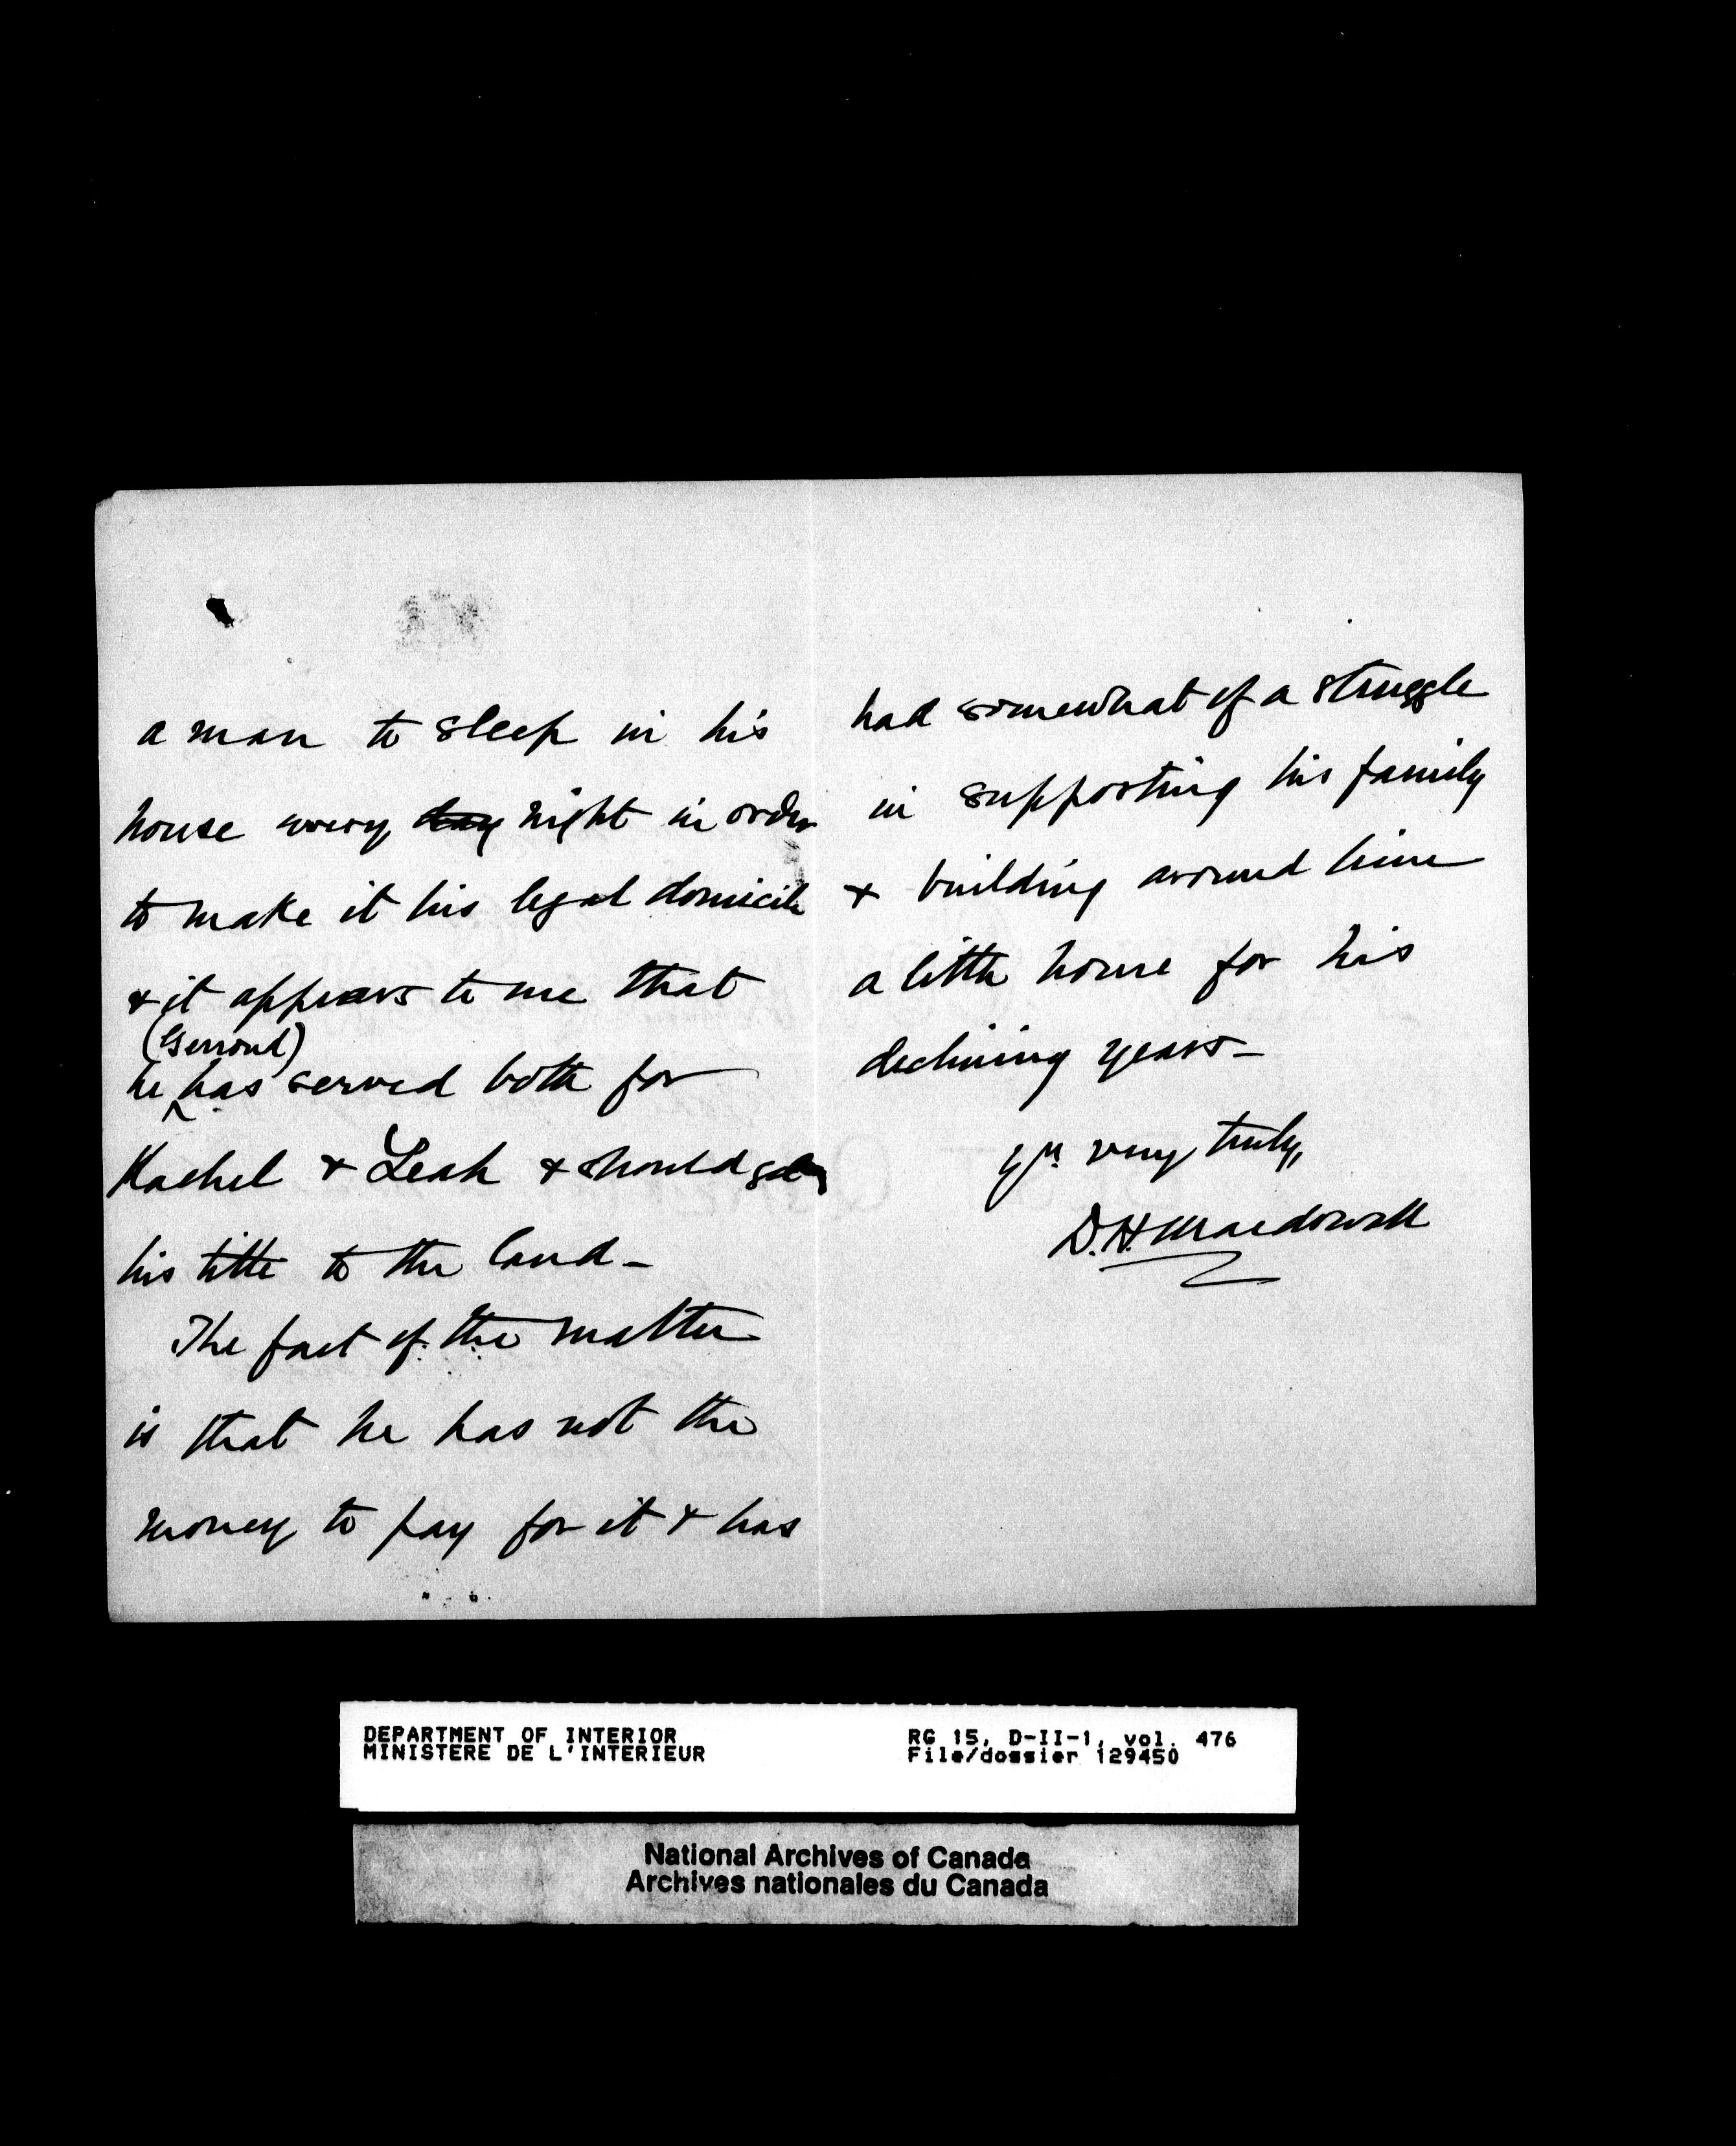 a man to sleep in his
house every day night in order
to make it his legal domicile
& it appears to me that
(Gerrond)
he has served both for
Rachel & Leah & should get
his title to the land -
The fact of the matter
is that he has not the
money to pay for it & has
had somewhat of a struggle
in supporting his family
& building around him
a little home for his
declining years -
yrs very truly,
D. H. Macdowall
DEPARTMENT OF INTERIOR
MINISTERE DE L'INTERIEUR
RG 15, D-II-1, vol. 476
File/dossier 129450
National Archives of Canada
Archives nationales du Canada